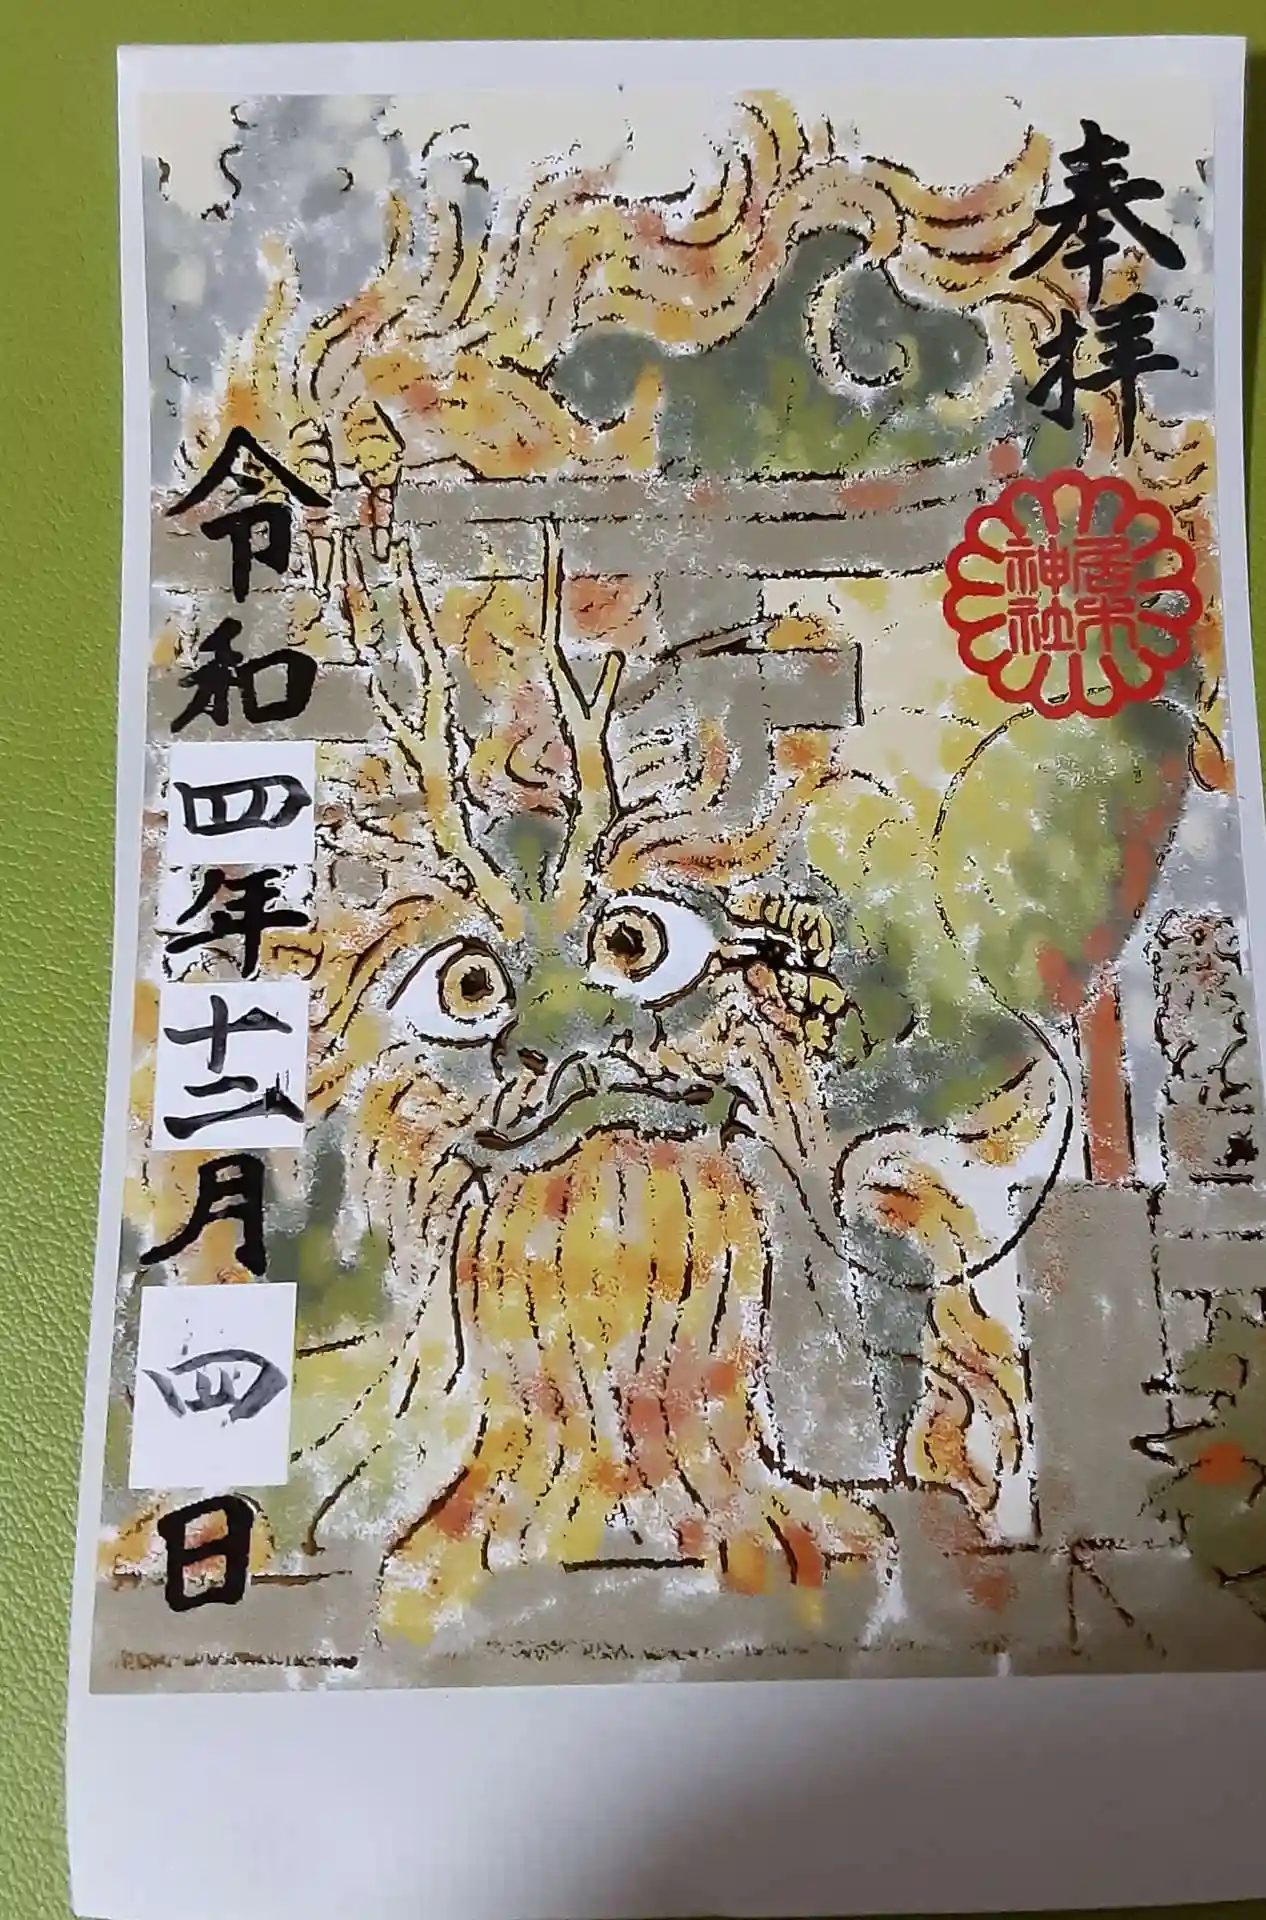 奉拝
居木
神社
令和四年十二月四日